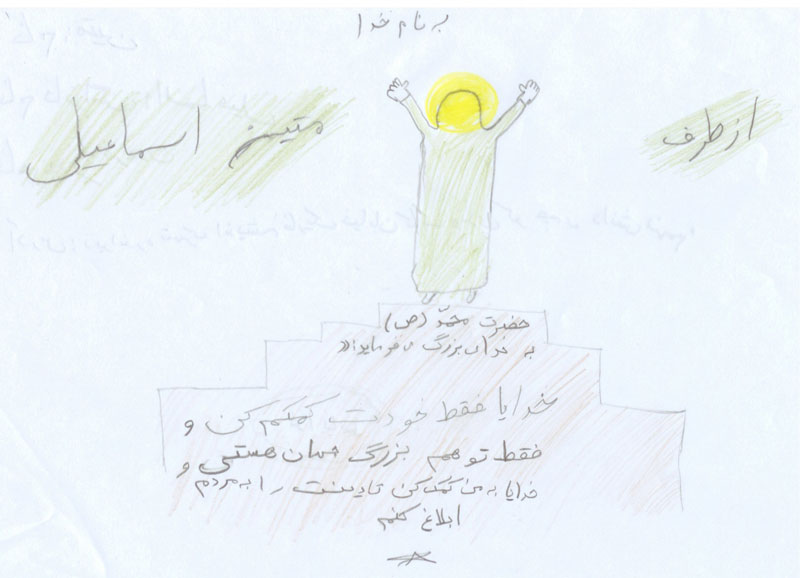 به نام خدا
از طرف
متین اسماعیلی
حضرت محمّد (ص)
به خدای بزرگ می‌فرماید:«
خدایا فقط خودت کمکم کن و
فقط تو هم بزرگ جهان هستی و
خدایا به من کمک کن تا دینت را به مردم
ابلاغ کنم